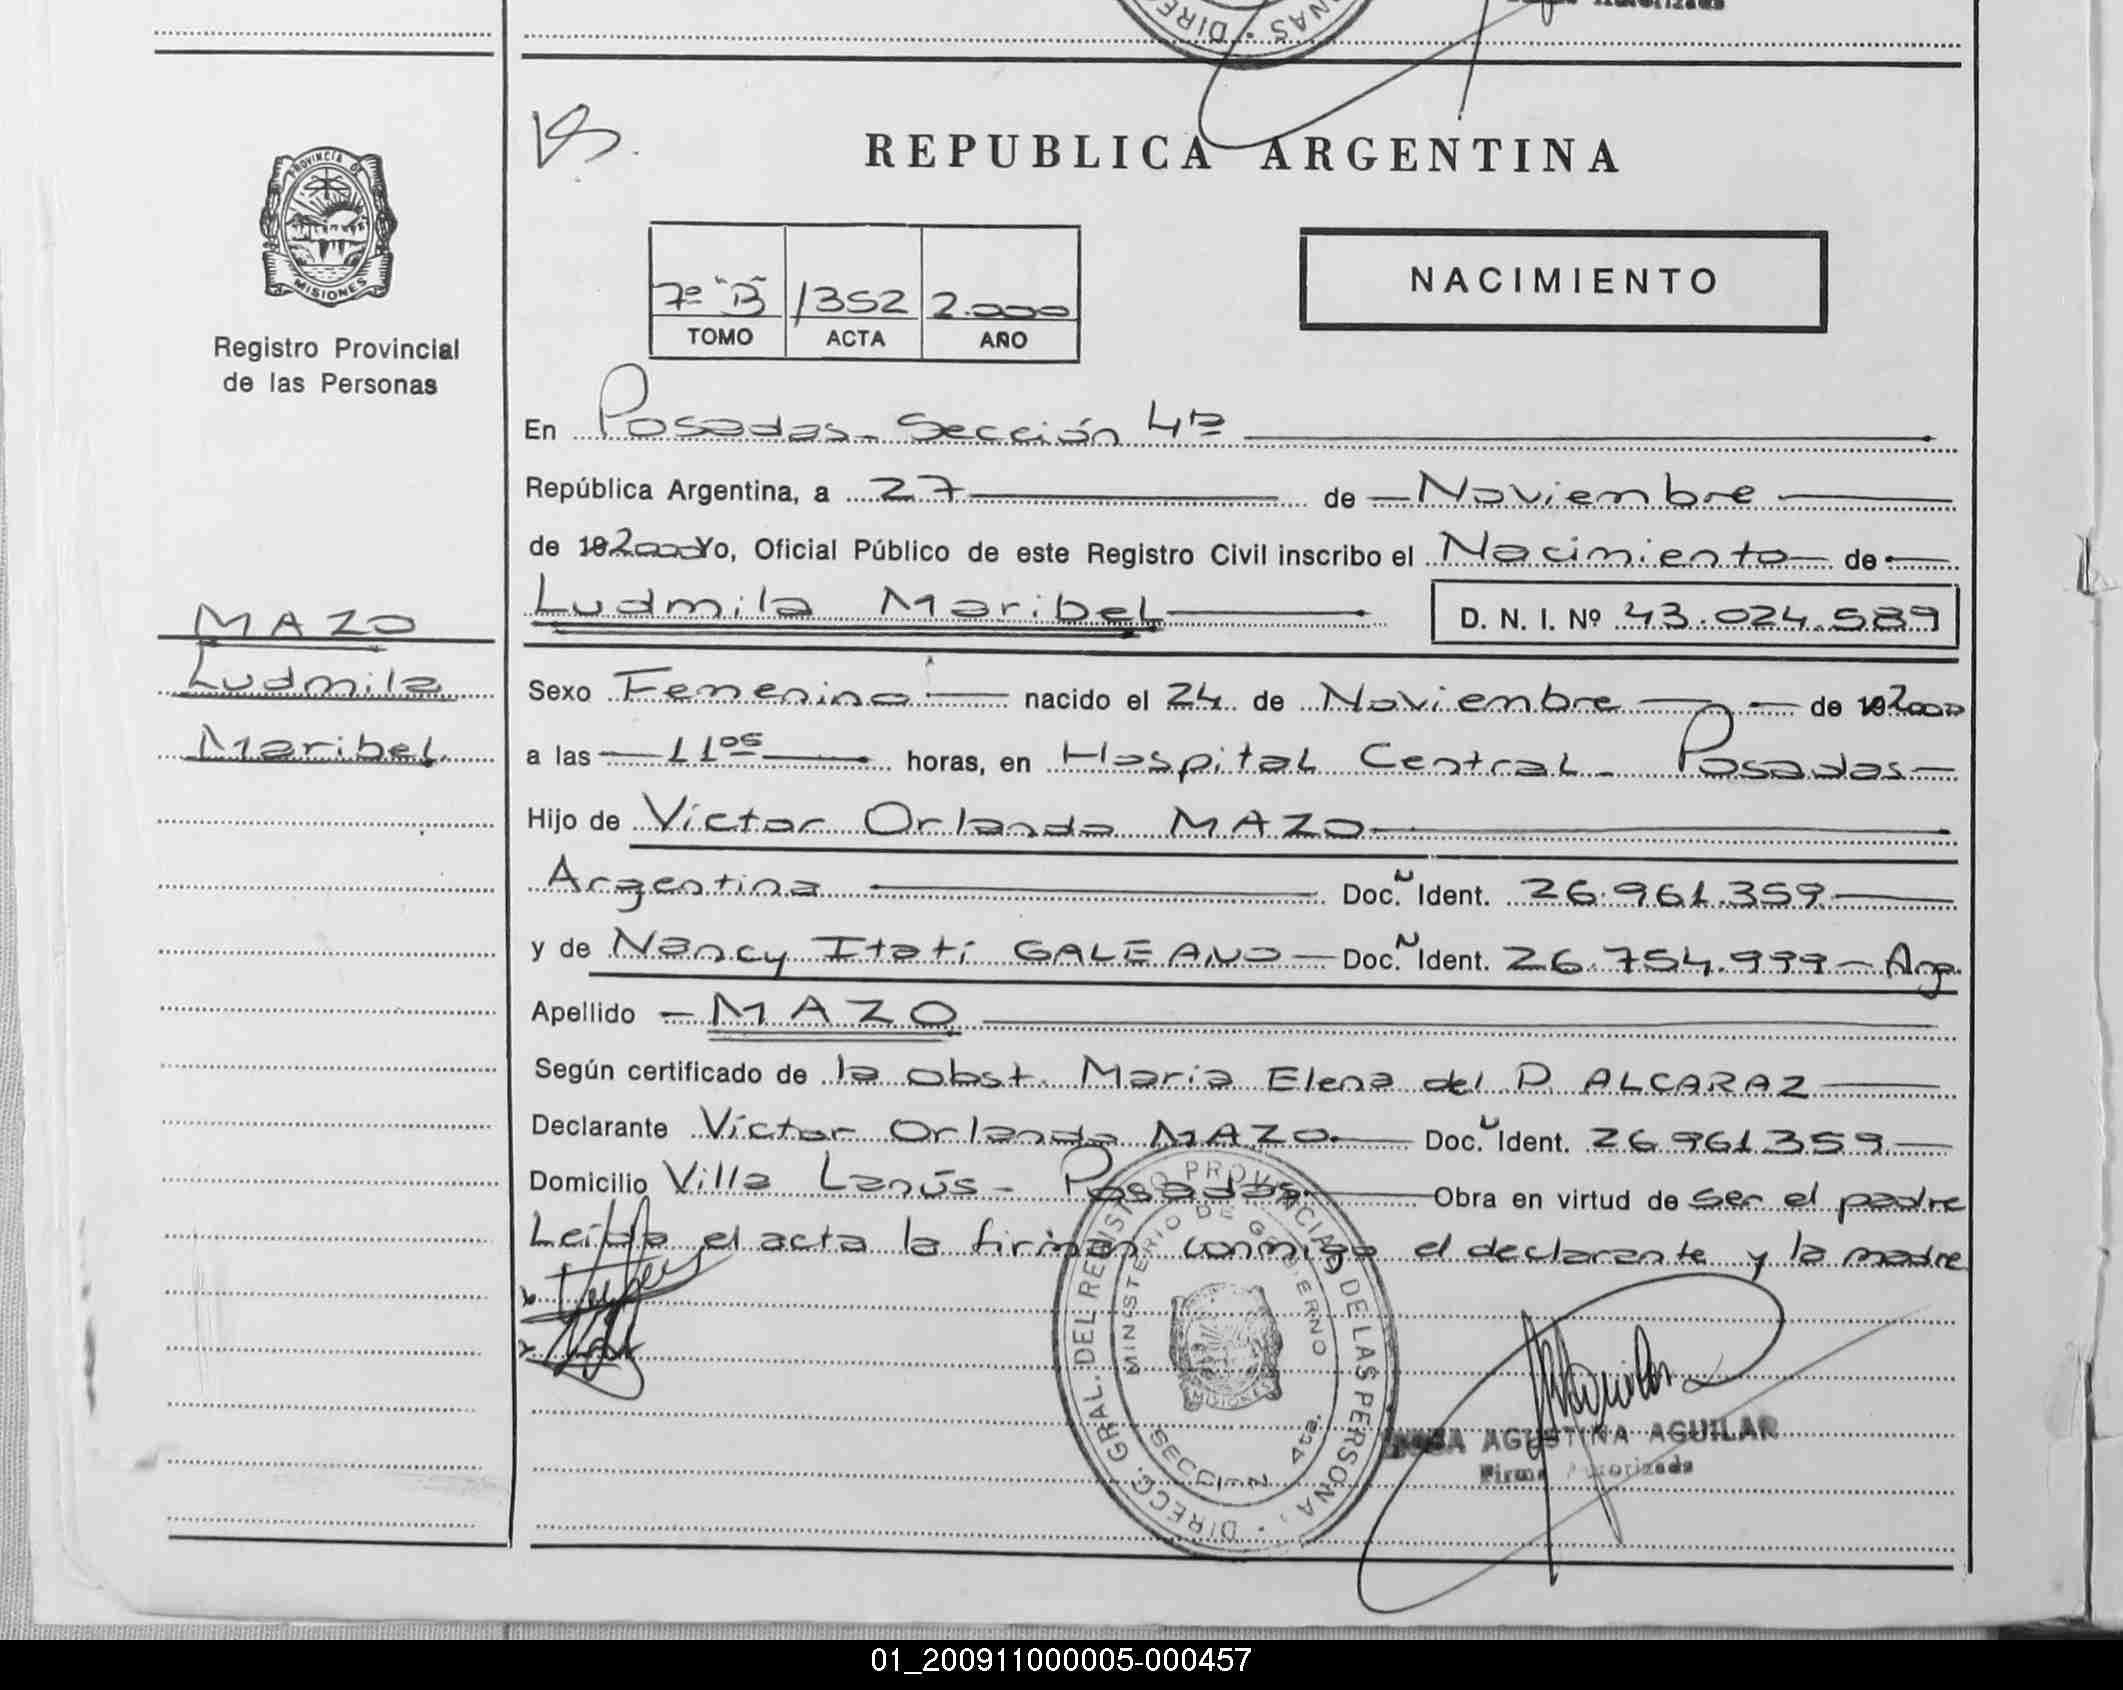 REPUBLICA ARGENTINA
PROVINCIA DE
MISIONES
Registro Provincial
de las Personas
7º "B" 1352 2.000
TOMO ACTA AÑO
NACIMIENTO
En Posadas - Sección 4ta
República Argentina, a 27 de Noviembre
de 2000 Yo, Oficial Público de este Registro Civil inscribo el Nacimiento de
Ludmila Maribel D. N. I. Nº 43.024.589
MAZO
Ludmila
Maribel
Sexo Femenino nacido el 24 de Noviembre de 2000
a las 11 05 horas, en Hospital Central - Posadas
Hijo de Victor Orlando MAZO
Argentina Doc. N Ident. 26.961.359
y de Nancy Itatí GALEANO Doc. N Ident. 26.754.999 - Arg.
Apellido MAZO
Según certificado de la obst. María Elena del P. ALCARAZ
Declarante Víctor Orlando MAZO Doc. N Ident. 26.961.359
Domicilio Villa Lanús - Posadas Obra en virtud de ser el padre
Leída el acta la firman conmigo el declarante y la madre
DIREC. GRAL. DEL REGISTRO PROVINCIAL DE LAS PERSONAS
MINISTERIO DE GOBIERNO
SECCION 4ta.
MISIONES
AGUSTINA AGUILAR
Firma Autorizada
01_200911000005-000457